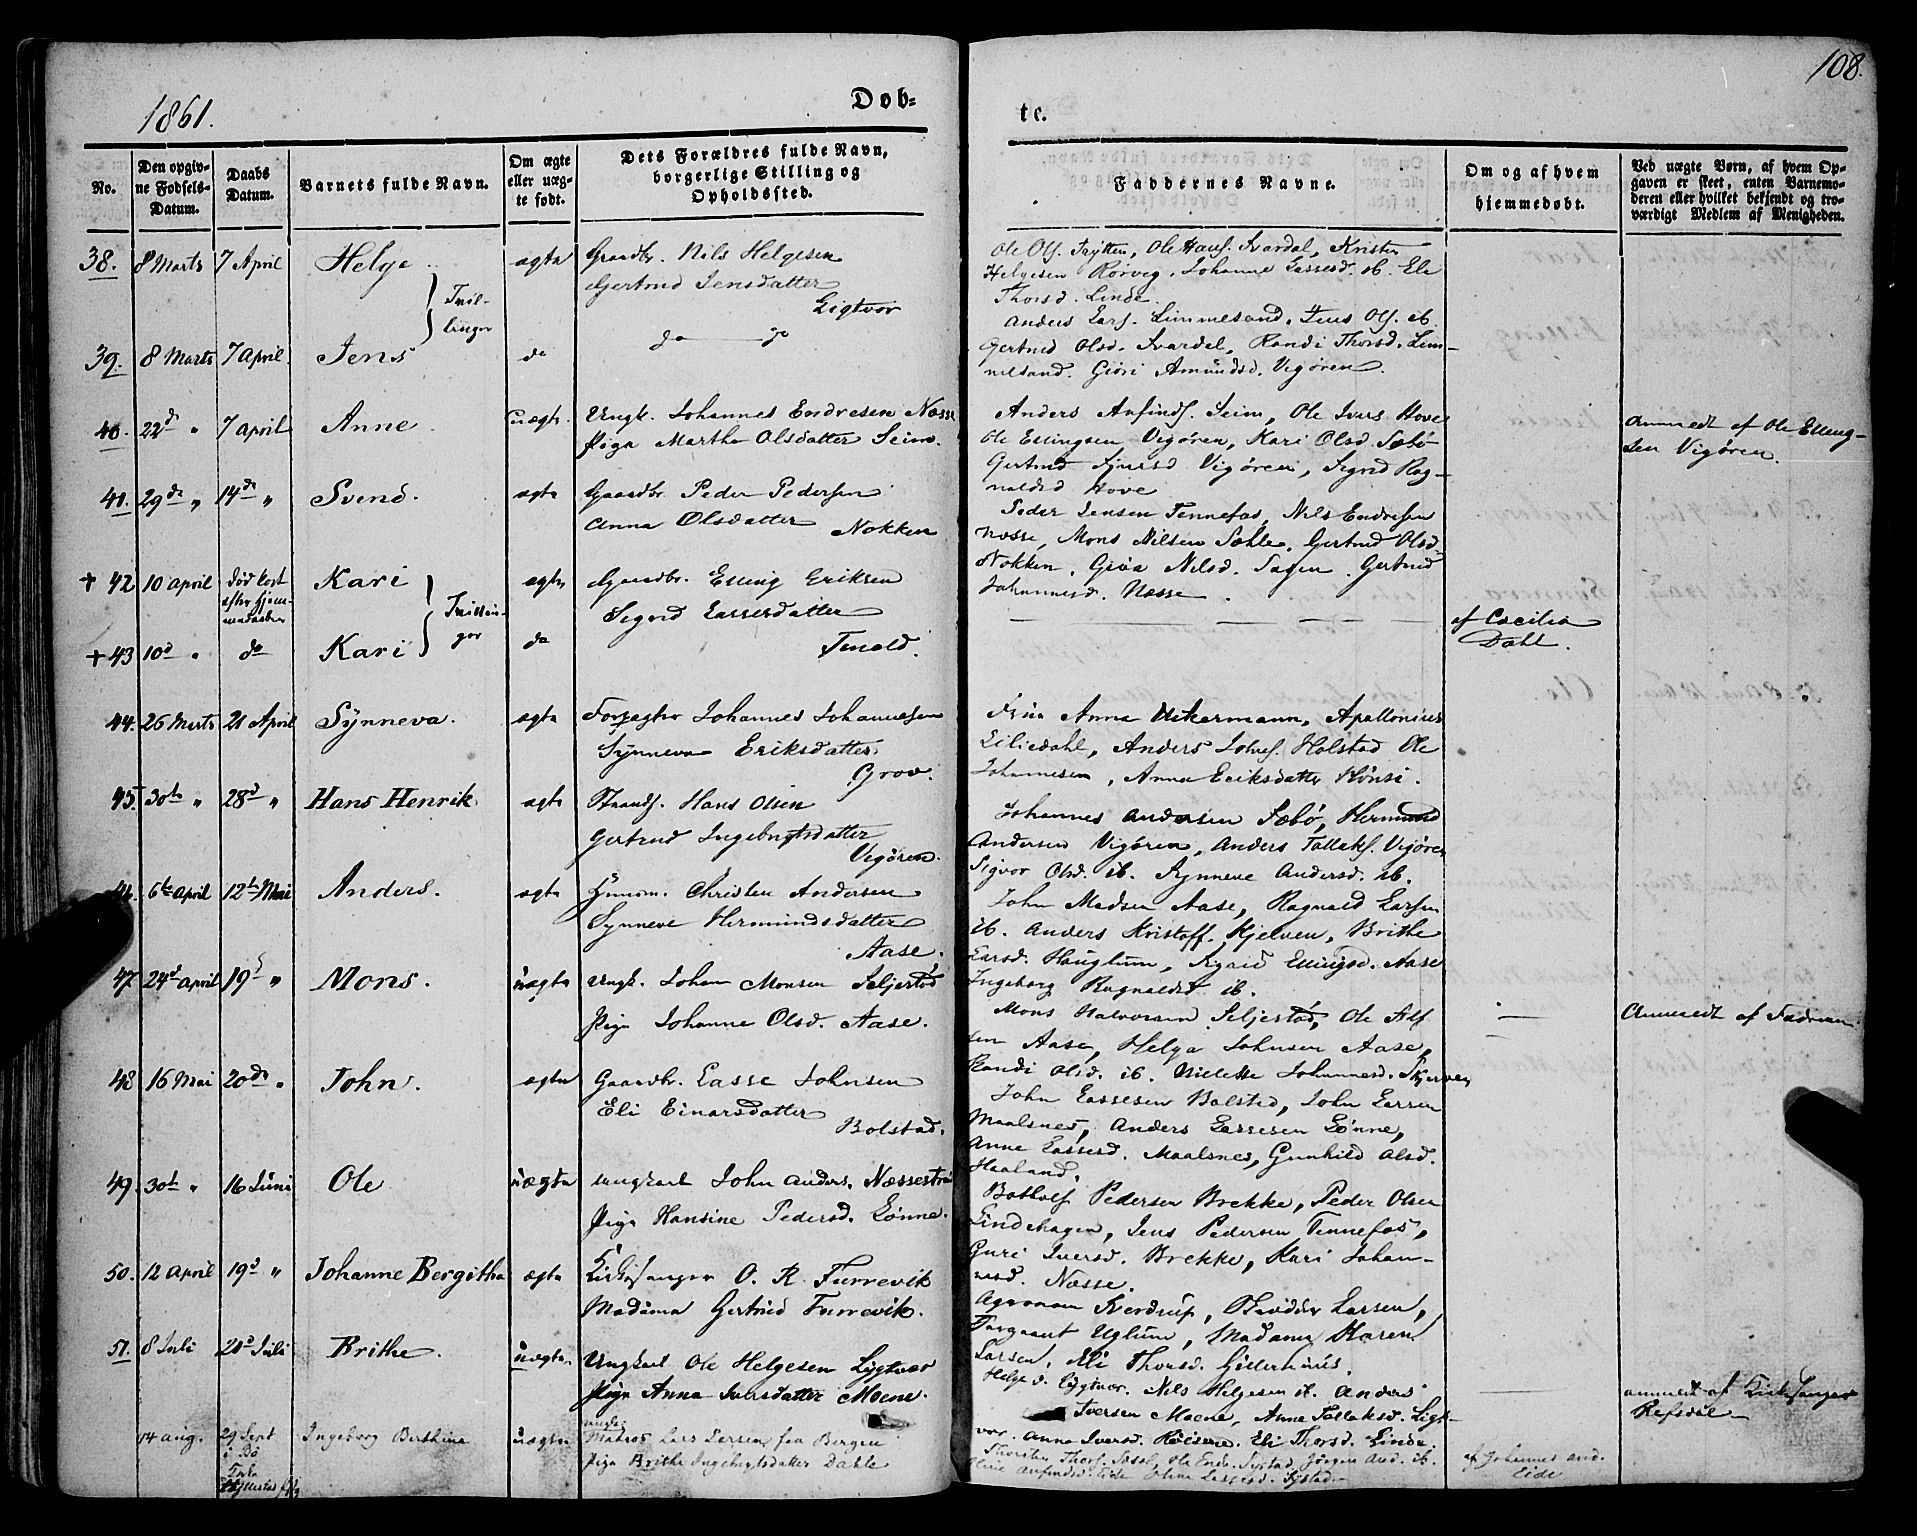 1861.
108.
Døb-
te.
No.
Den opgiv-
ne Fødsels-
Datum.
Daabs
Datum.
Barnets fulde Navn.
Om ægte
eller uæg-
te født.
Dets Forældres fulde Navn,
borgerlige Stilling og
Opholdssted.
Faddernes Navne.
Om og af hvem
hjemmedøbt.
Ved uægte Børn, af hvem Op-
gaven er skeet, enten Barnemo-
deren eller hvilket bekjendt og tro-
værdigt Medlem af Menigheden.
38. 8 Marts 7 April Helge ægte Gaardbr. Nils Helgesen
Gertrud Jensdatter
Ligtvor
Tvil-
linger
Ole Ols. Frytten, Ole Hans. Svardal, Kristen
Helgesen Rørveg, Johanne Lassesd. ib. Eli
Thorsd. Linde.
39. 8 Marts 7 April Jens do do do
Anders Lars. Limmesand, Jens Ols. ib
Gertrud Olsd. Svardal, Randi Thorsd. Lim-
mesand. Giøri Amundsd. Vigøren.
40. 22d " 7 April Anne uægte. Ungk. Johannes Endresen Næsse
Pige Martha Olsdatter Seim.
Anders Anfinds. Seim, Ole Ivers. Hove
Ole Ellingsen Vigøren, Kari Olsd. Sæbø
Gertrud Sjursd Vigøren, Sigrid Rag-
naldsd Hove
Anmeldt af Ole Elling-
sen Vigøren.
41. 29de " 14de " Svend. ægte Gaardbr. Peder Pedersen
Anna Olsdatter Nokken
Peder Jensen Tennefos, Nils Endresen
Næsse, Mons Nilsen Sæhle. Gertrud Olsd.
Nokken, Giøa Nilsd. Tagen. Gertrud
Johannesd. Næsse.
+ 42 10 April død kort
efter hjem-
medaaben
Kari ægte Gaardbr. Elling Eriksen
Sigrid Lassesdatter
Tenold.
Tvillin-
ger
+ 43 10d " do Kari do
af Cæcilia
Dahl.
44. 26 Marts 21 April Synneva. ægte Forpagter Johannes Johannesen
Synneva Eriksdatter.
Grov.
Frue Anna Ackermann, Apollonius
Liliedahl, Anders Johs. Holstad Ole
Johannesen, Anna Eriksdatter Hønsi.
45. 30te " 28d " Hans Henrik. ægte Strands. Hans Olsen
Gertrud Ingebrigtsdatter
Vigøren.
Johannes Andersen Sæbø, Hermund
Andersen Vigøren, Anders Tollaks. Vigøren
Sigvor Olsd. ib. Synneve Andersd. ib.
46. 6te April 12te Mai Anders. ægte Huusm. Christen Andersen
Synneve Hermundsdatter
Aase.
John Madsen Aase, Ragnald Larsen
ib. Anders Kristoff. Kjelven, Brithe
Larsd. Hauglum, Sigrid Ellingsd. Aase
Ingeborg Ragnaldsd ib.
47. 24de April 19d " Mons. uægte Ungk. Johan Monsen Seljestad,
Pige Johanne Olsd. Aase.
Mons Halvorsen Seljestad, Ole Als-
sen Aase, Helge Johnsen Aase,
Randi Olsd. ib. Nielette Johannesd. Skjerven
Anmeldt af Faderen.
48 16 Mai 20de " John. ægte Gaardbr. Lasse Johnsen
Eli Einarsdatter
Bolstad.
John Lassesen Bolstad, John Larsen
Maalsnes, Anders Lassesen Lønne,
Anne Lassesd. Maalsnes, Gunhild Olsd.
Haaland.
49. 30te " 16 Juni Ole uægte Ungkarl John Anders. Næssestra
Pige Hansine Pedersd. Lønne.
Botholf Pedersen Brekke, Peder Olsen
Lindehagen, Jens Pedersen Tennefos,
Guri Iversd. Brekke, Kari Johan-
nesd. Næsse.
50. 12 April 19d " Johanne Bergitha ægte Kirkesanger O. R. Turrevik
Madama Gertrud Turrevik.
Agronom Sverdrup, Larsen,
Sergeant Uglum, Madama Karen
Larsen, Eli Thorsd. Gillerhuus.
51. 8 Juli 28d Juli Brithe. uægte. Ungkarl Ole Helgesen Ligtvor
Pige Anna Iversdatter Moene.
Helge Ligtvor. Nils Helgesen ib. Anders
Iversen Moene, Anna Tollaksd. Ligt-
vor. Anna Iversd. Høisene. Eli Thorsd. Linde.
anmeldt af Kirkesanger
Refsdal
14 aug. 29 Sept
i Bø
Ingeborg Berthine uægte Matros Lars Larsen fra Bergen
Pige Brithe Ingebrigtsdatter Dahle
Thorsten Thors. Ole Ends. Systad, Jørgen And. ib.
Oline Anfinds. Eide Oline Lassesd. Systad.
af Johannes And.
Eide